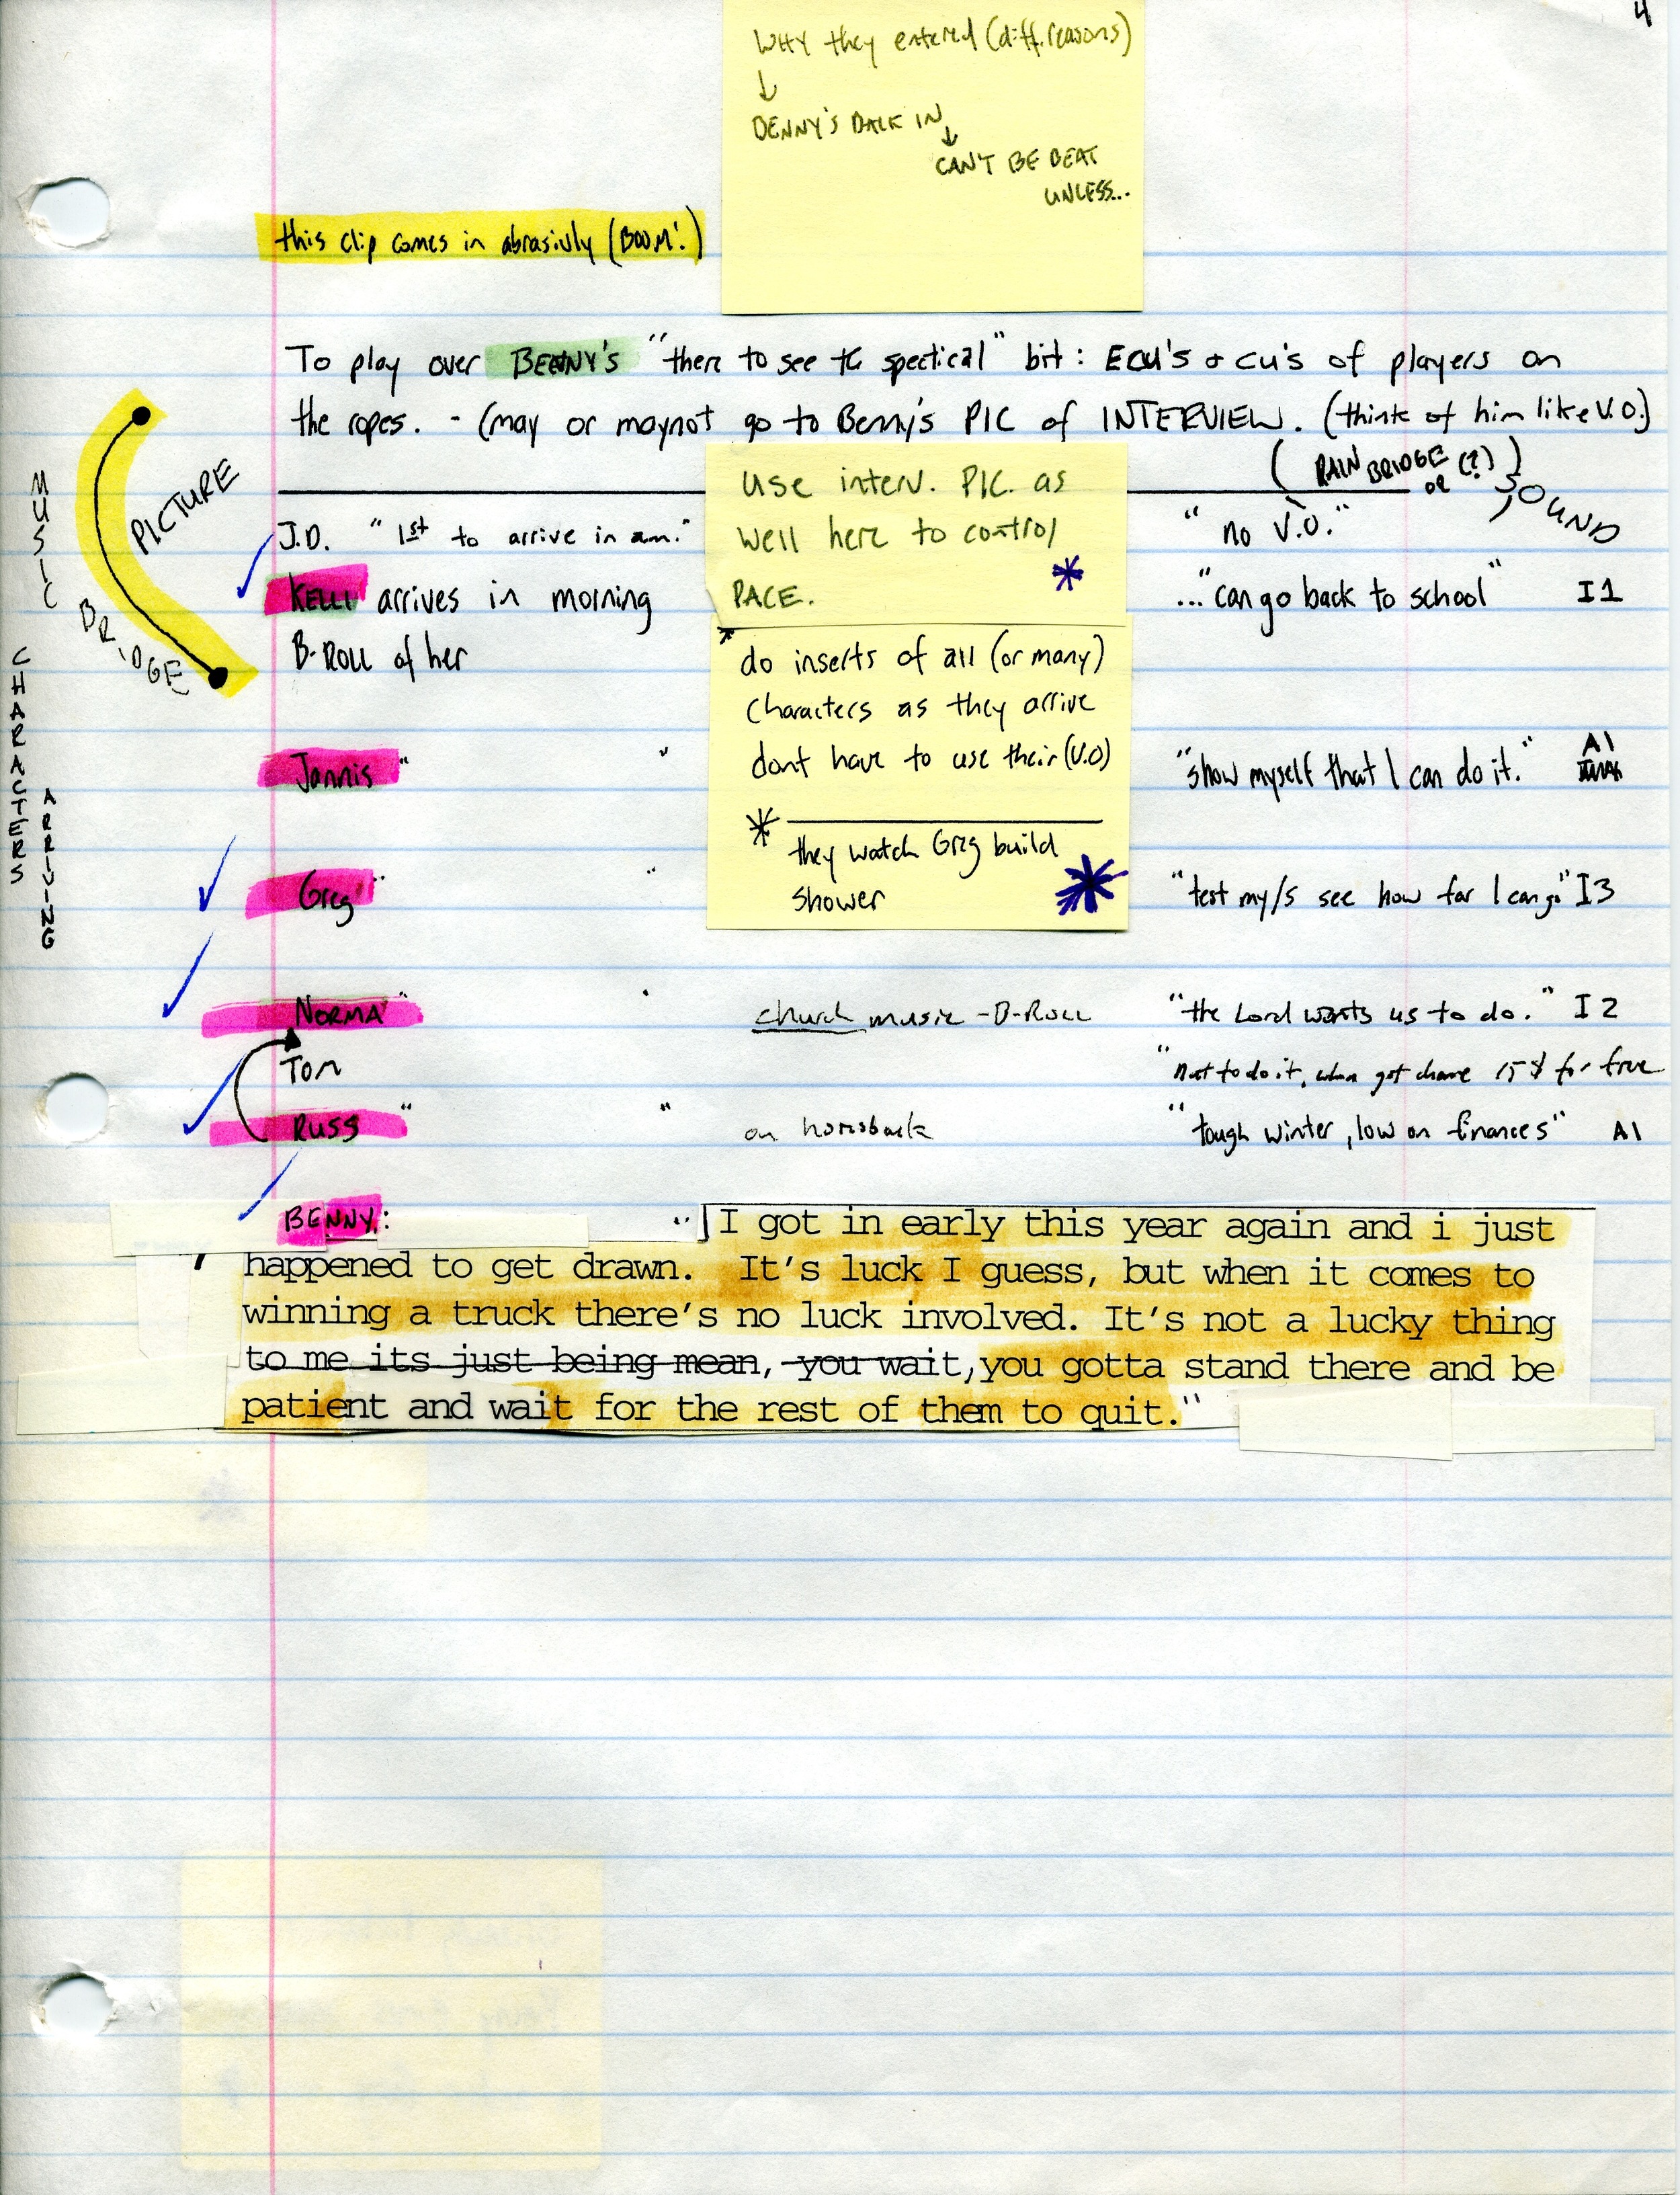 4
WHY they entered (diff. reasons)
↓
BENNY'S BACK IN
↓
CAN'T BE BEAT
UNLESS...
this clip comes in abrasivly (BOOM!)
To play over BENNY'S "there to see the spectical" bit: ECU's + CU's of players on
the ropes. - (may or maynot go to Benny's PIC of INTERVIEW. (think of him like V.O.)
(RAIN BRIDGE (?))
or
SOUND
MUSIC BRIDGE
PICTURE
CHARACTERS
ARRIVING
Use interv. PIC. as
well here to control
PACE. *
J.D. "1st to arrive in am." "no V.O."
KELLI arrives in morning ..."can go back to school" I1
B-ROLL of her
* do inserts of all (or many)
characters as they arrive
dont have to use their (V.O)
* they watch Greg build
shower *
Jannis " " "show myself that I can do it." A1
Greg " " "test my/s see how far I can go" I3
NORMA " " church music - B-ROLL "the Lord wants us to do." I2
Tom "not to do it, when got chance 15 $ for free
RUSS " " on horseback "tough winter, low on finances" A1
BENNY: "I got in early this year again and i just
happened to get drawn. It's luck I guess, but when it comes to
winning a truck there's no luck involved. It's not a lucky thing
to me its just being mean, you wait, you gotta stand there and be
patient and wait for the rest of them to quit."